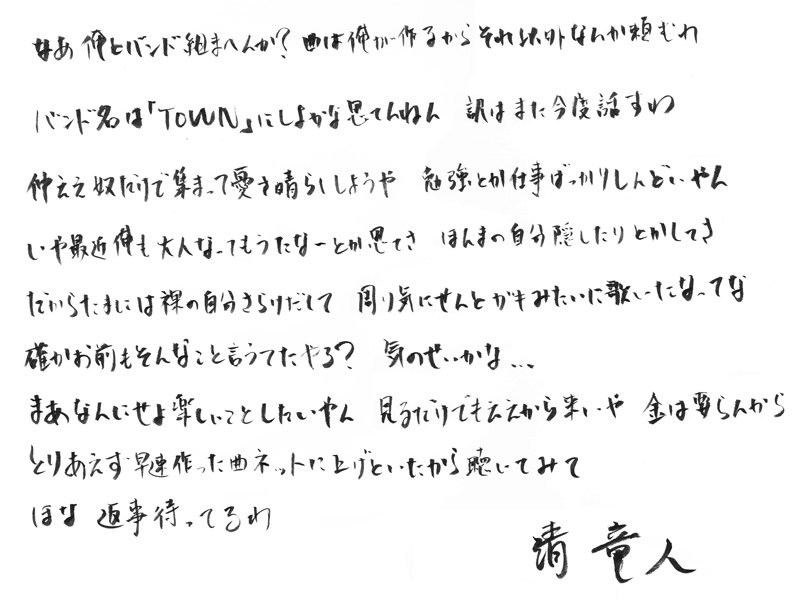 なあ 俺とバンド組まへんか? 曲は俺が作るからそれ以外なんか頼むわ
バンド名は「TOWN」にしよかな思てんねん 訳はまた今度話すわ
仲ええ奴だけで集まって憂さ晴らししようや 勉強とか仕事ばっかりしんどいやん
いや最近俺も大人なってもうたなーとか思てさ ほんまの自分隠したりとかしてさ
だからたまには裸の自分さらけだして 周り気にせんとガキみたいに歌いたなってな
確かお前もそんなこと言うてたやろ? 気のせいかな...
まあなんにせよ楽しいことしたいやん 見るだけでもええから来いや 金は要らんから
とりあえず早速作った曲ネットに上げといたから聴いてみて
ほな 返事待ってるわ
清 竜人